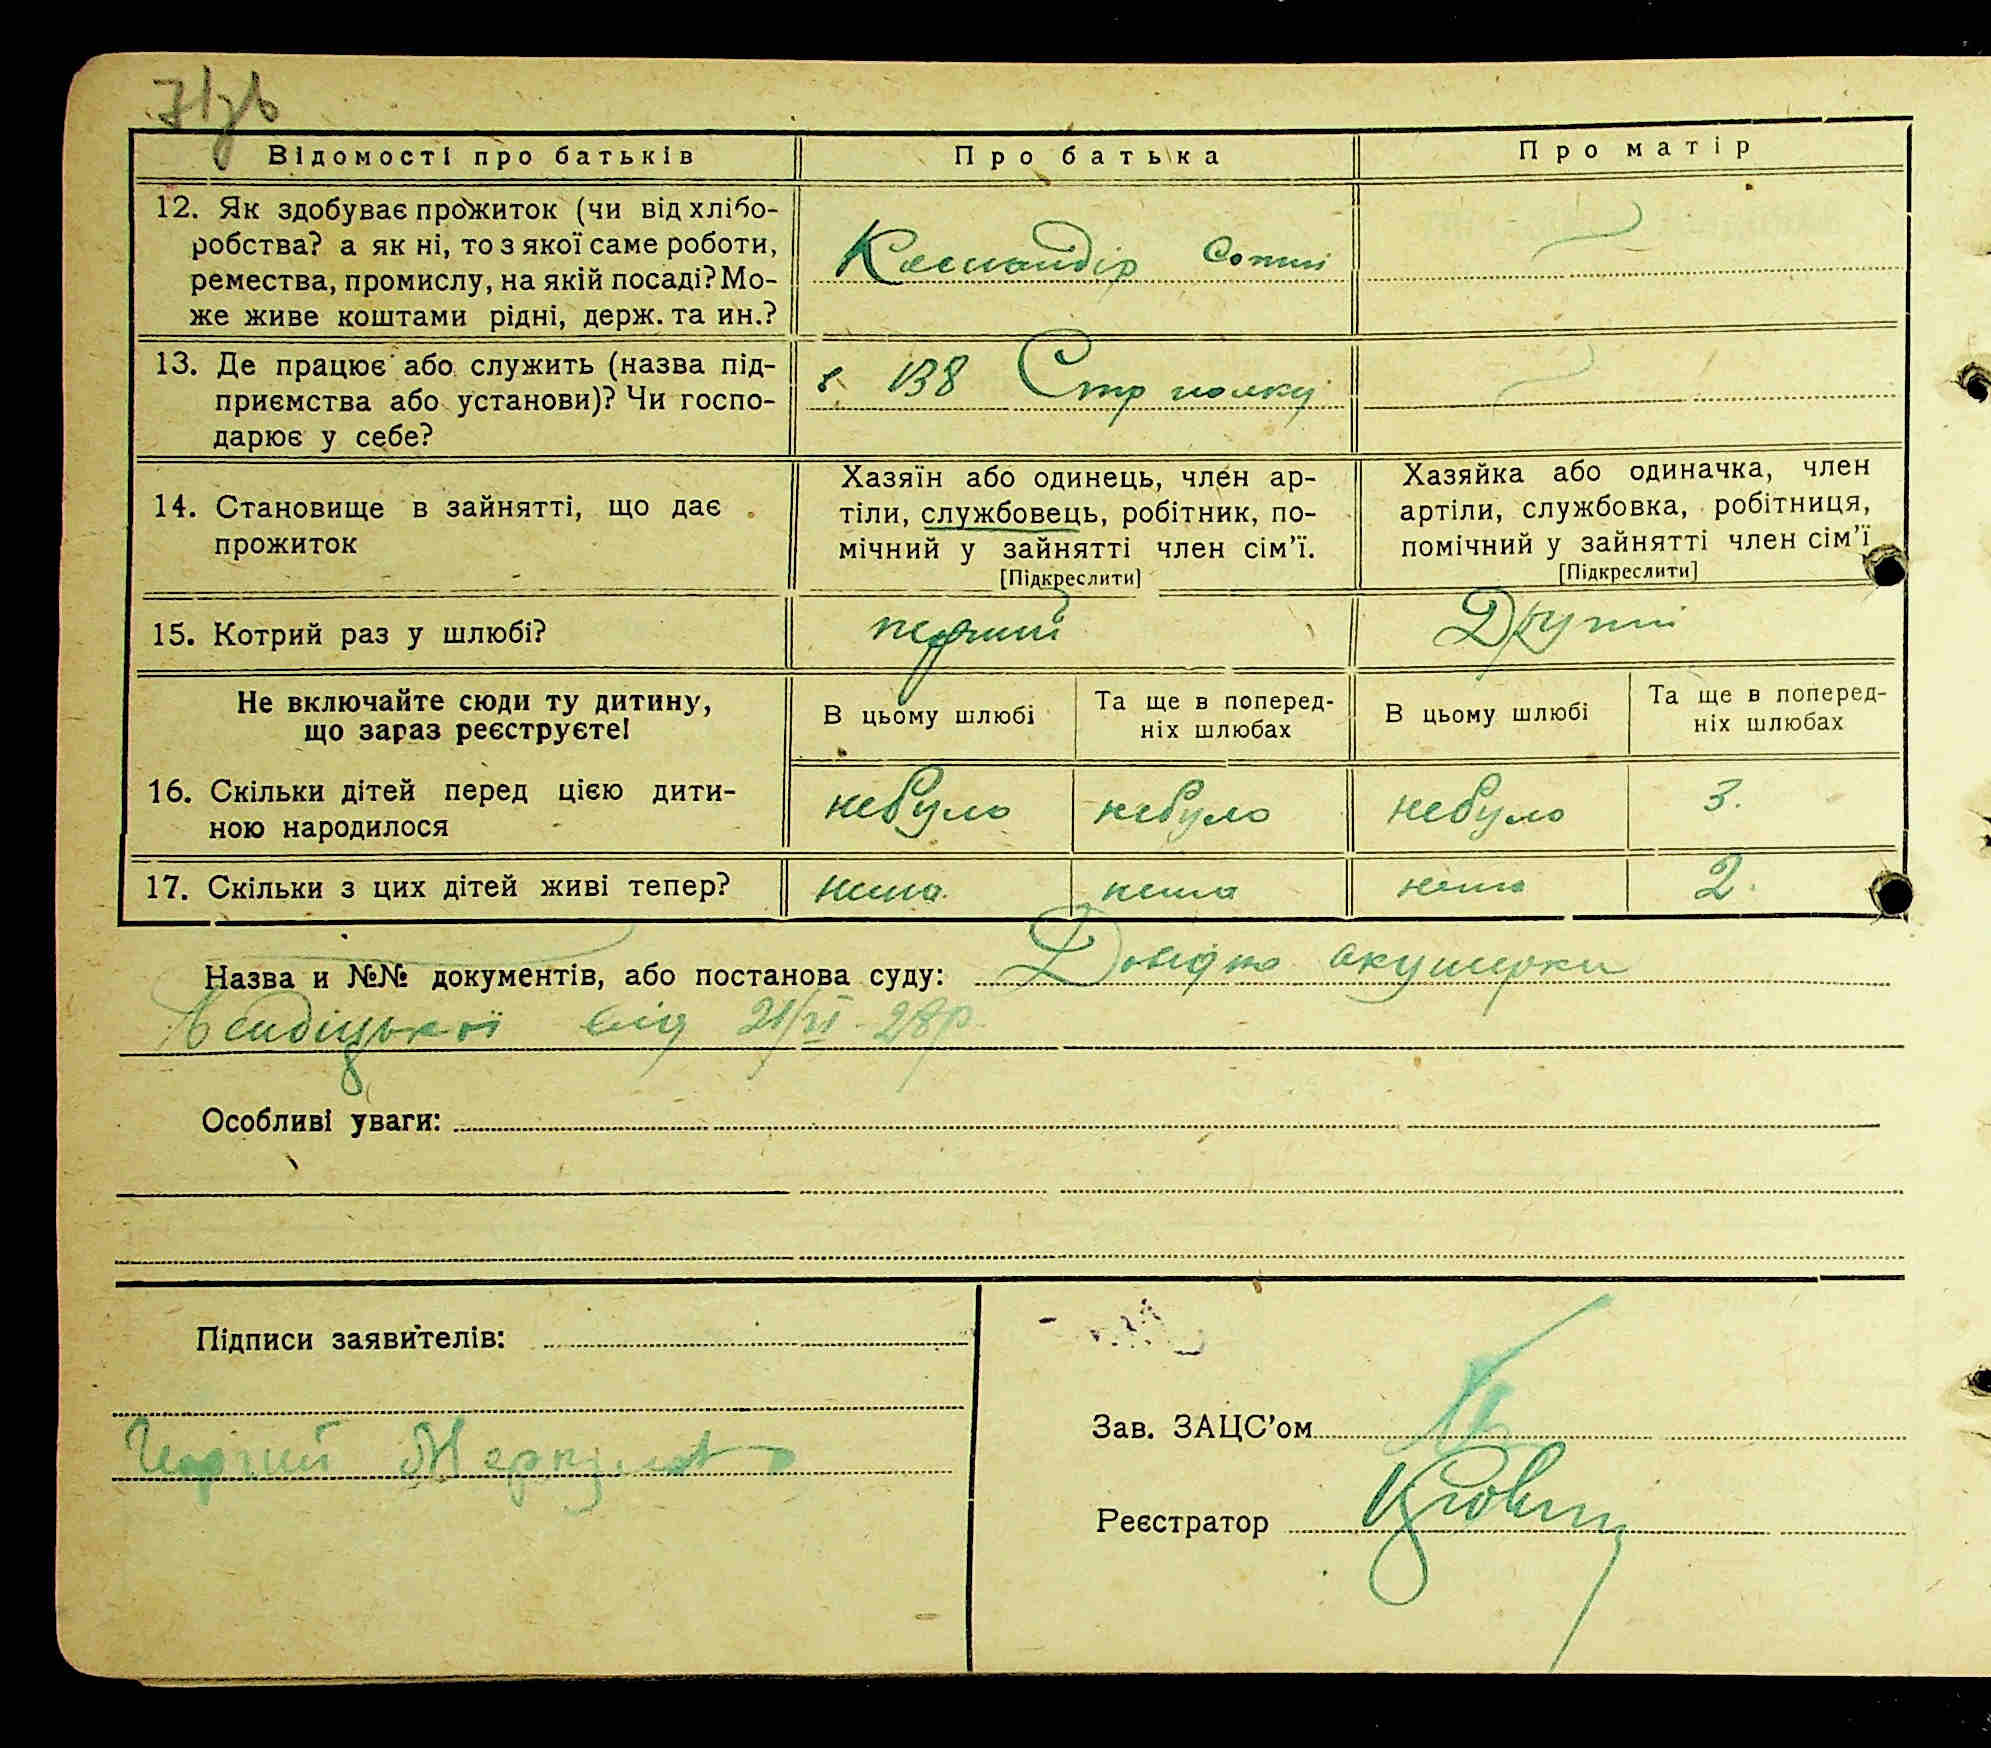 71зв
Відомості про батьків
Про батька
Про матір
12. Як здобуває прожиток (чи від хлібо-
робства? а як ні, то з якої саме роботи,
ремества, промислу, на якій посаді? Мо-
же живе коштами рідні, держ. та ин.?
Командір сотні
13. Де працює або служить (назва під-
приємства або установи)? Чи госпо-
дарює у себе?
138 Стр полку
14. Становище в зайнятті, що дає
прожиток
Хазяїн або одинець, член ар-
тіли, службовець, робітник, по-
мічний у зайнятті член сім’ї.
[Підкреслити]
Хазяйка або одиначка, член
артіли, службовка, робітниця,
помічний у зайнятті член сім’ї
[Підкреслити]
15. Котрий раз у шлюбі?
перший
Другий
Не включайте сюди ту дитину,
що зараз реєструєте!
В цьому шлюбі
Та ще в поперед-
ніх шлюбах
В цьому шлюбі
Та ще в поперед-
ніх шлюбах
16. Скільки дітей перед цією дити-
ною народилося
небуло
небуло
небуло
3.
17. Скільки з цих дітей живі тепер?
нема
нема
нема
2.
Назва и №№ документів, або постанова суду: Довідка акушерки
від 21/VI-28р.
Особливі уваги:
Підписи заявителів:
Меркулов
Зав. ЗАЦС’ом
Реєстратор